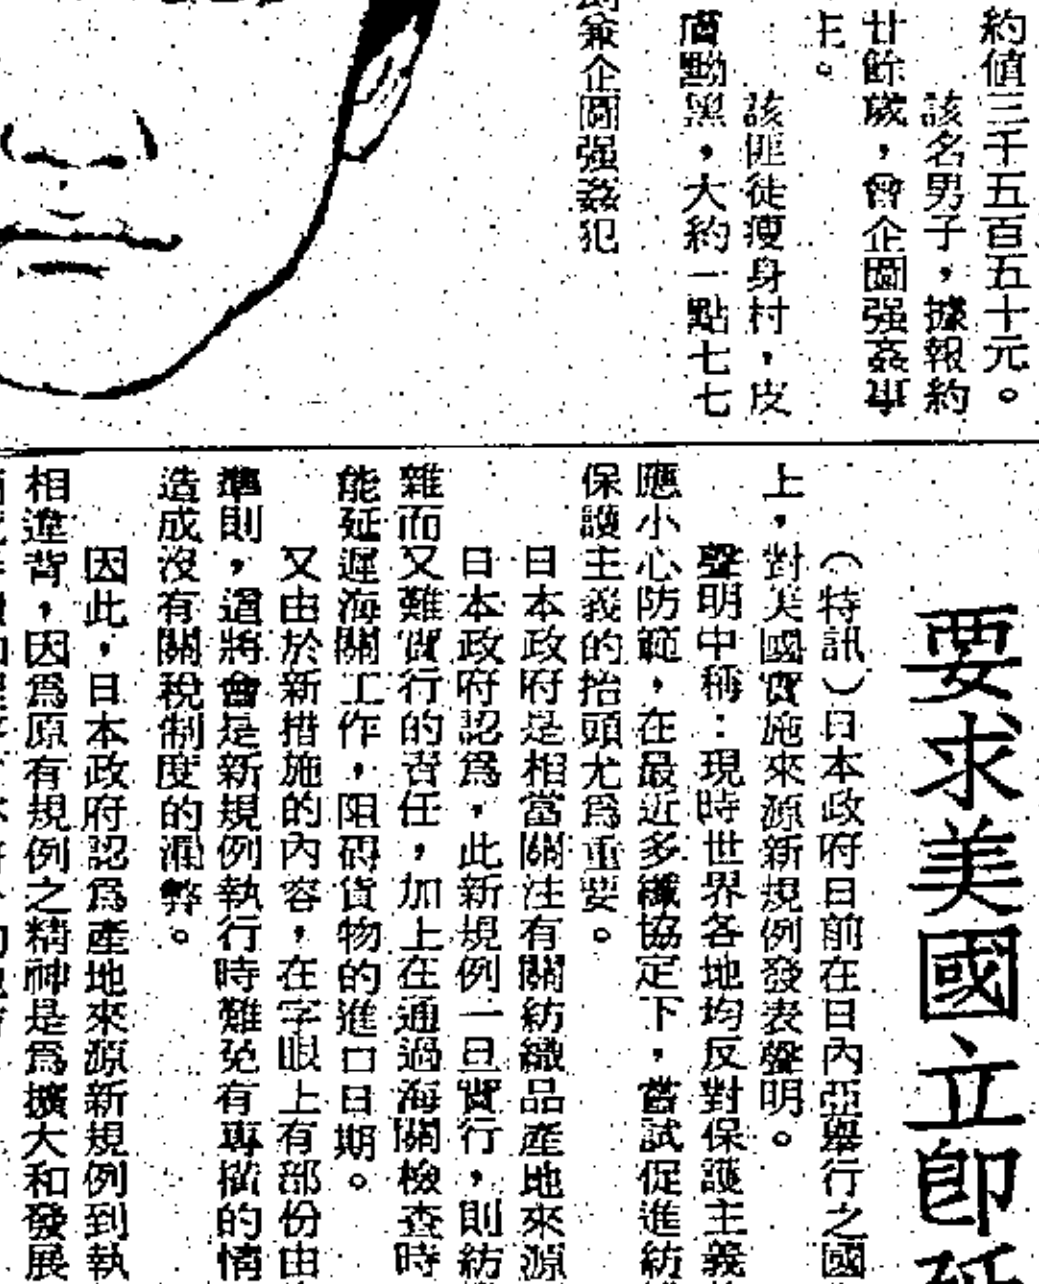 約値三千五百五十元。
該名男子，據報約
廿餘歲，曾企圖强姦事
主。
該匪徒瘦身材，皮
膚黝黑，大約一點七七
兼企圖强姦犯
要求美國立卽
（特訊）日本政府日前在日內亞舉行之國
上，對美國實施來源新規例發表聲明。
聲明中稱：現時世界各地均反對保護主義
應小心防範，在最近多纖協定下，嘗試促進紡
保護主義的抬頭尤爲重要。
日本政府是相當關注有關紡織品產地來源
日本政府認爲，此新規例一旦實行，則紡
雜而又難實行的責任，加上在通過海關檢查時
能延遲海關工作，阻碍貨物的進口日期。
又由於新措施的內容，在字眼上有部份由
準則，這將會是新規例執行時難免有專橫的情
造成沒有關稅制度的濫弊。
因此，日本政府認爲產地來源新規例到執
相違背，因爲原有規例之精神是爲擴大和發展